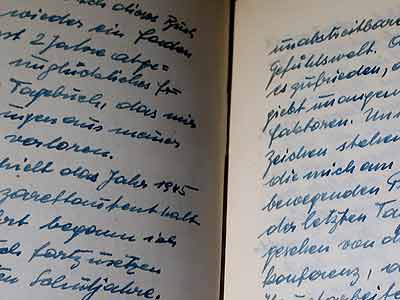 dieses Buch
wieder ein Faden
2 Jahre abge=
unglückliches
Tagebuch, das mir
ungen aus meiner
verloren.
hielt das Jahr 1945
zarettaufenthalt
begann ich
fortzusetzen
Schuljahre.
unabstreitbare
Gefühlswelt.
es zufrieden,
giebt unangen
faktoren.
Zeichen stehen
die mich am
bewegenden
der letzten Ta
gesehen von d
konferenz,